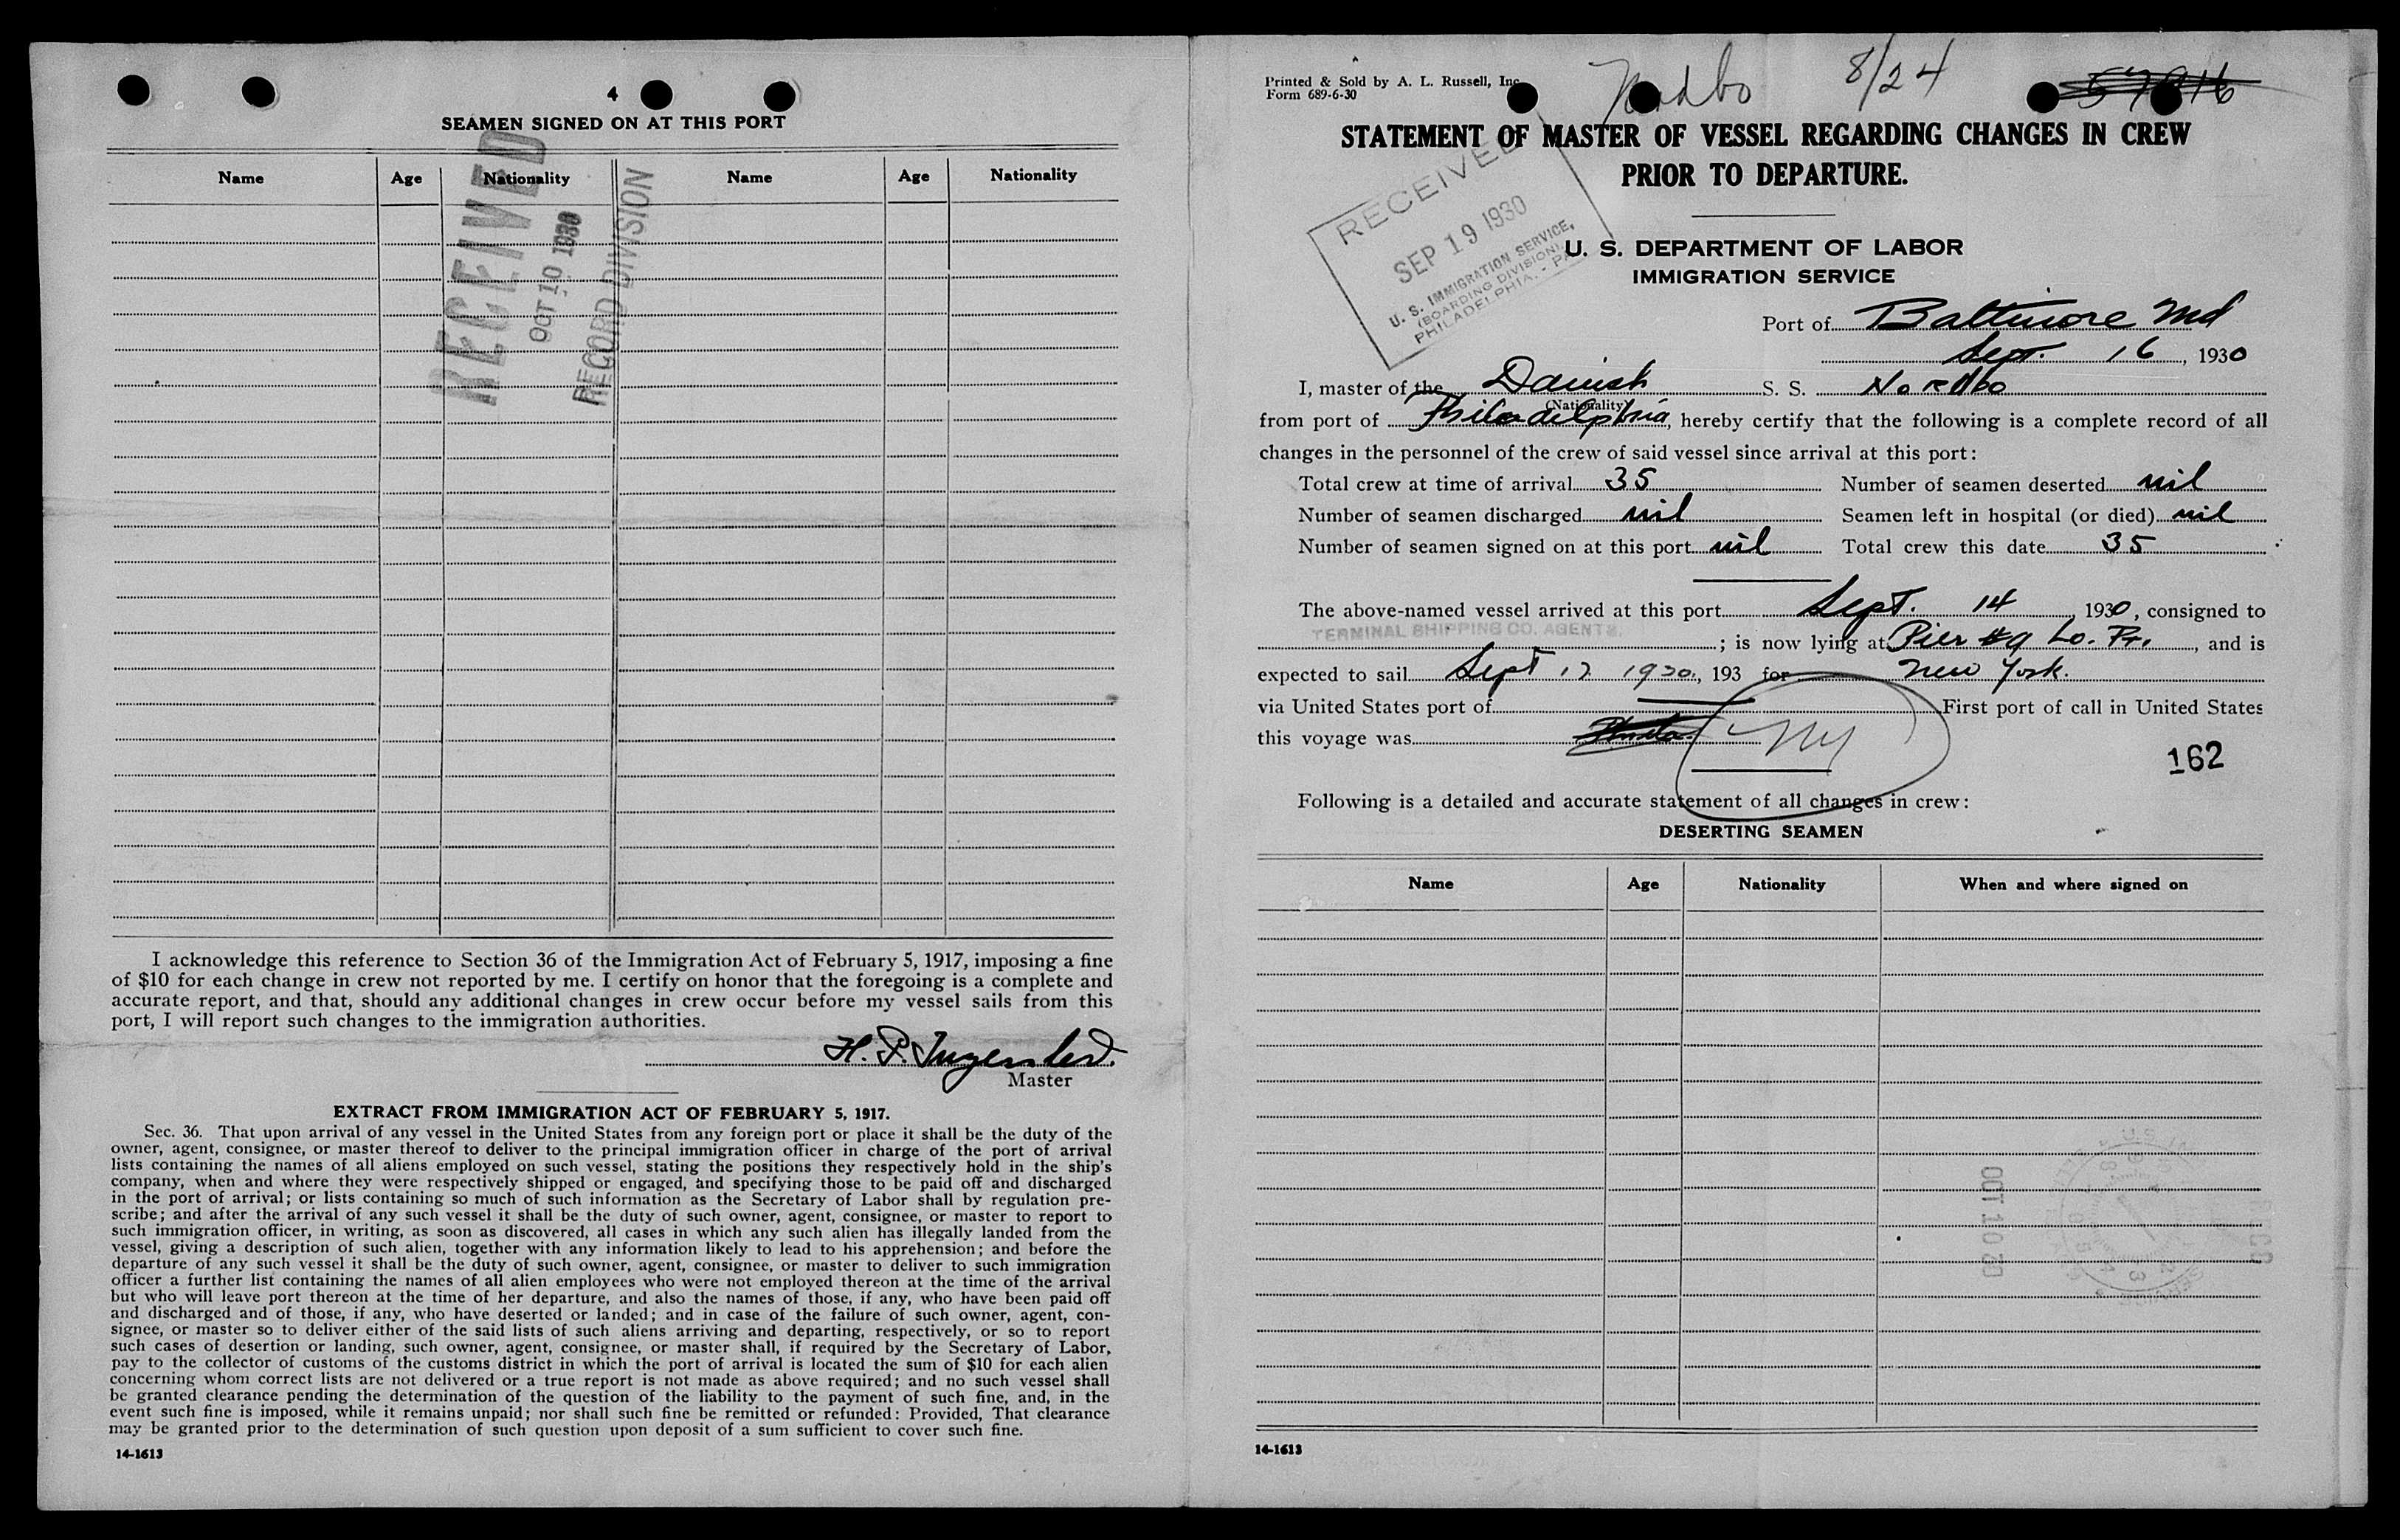 4
SEAMEN SIGNED ON AT THIS PORT
Name Age Nationality Name Age Nationality
RECEIVED
OCT 10 1930
RECORD DIVISION
I acknowledge this reference to Section 36 of the Immigration Act of February 5, 1917, imposing a fine
of $10 for each change in crew not reported by me. I certify on honor that the foregoing is a complete and
accurate report, and that, should any additional changes in crew occur before my vessel sails from this
port, I will report such changes to the immigration authorities.
H. P.
Master
EXTRACT FROM IMMIGRATION ACT OF FEBRUARY 5, 1917.
Sec. 36. That upon arrival of any vessel in the United States from any foreign port or place it shall be the duty of the
owner, agent, consignee, or master thereof to deliver to the principal immigration officer in charge of the port of arrival
lists containing the names of all aliens employed on such vessel, stating the positions they respectively hold in the ship's
company, when and where they were respectively shipped or engaged, and specifying those to be paid off and discharged
in the port of arrival; or lists containing so much of such information as the Secretary of Labor shall by regulation pre-
scribe; and after the arrival of any such vessel it shall be the duty of such owner, agent, consignee, or master to report to
such immigration officer, in writing, as soon as discovered, all cases in which any such alien has illegally landed from the
vessel, giving a description of such alien, together with any information likely to lead to his apprehension; and before the
departure of any such vessel it shall be the duty of such owner, agent, consignee, or master to deliver to such immigration
officer a further list containing the names of all alien employees who were not employed thereon at the time of the arrival
but who will leave port thereon at the time of her departure, and also the names of those, if any, who have been paid off
and discharged and of those, if any, who have deserted or landed; and in case of the failure of such owner, agent, con-
signee, or master so to deliver either of the said lists of such aliens arriving and departing, respectively, or so to report
such cases of desertion or landing, such owner, agent, consignee, or master shall, if required by the Secretary of Labor,
pay to the collector of customs of the customs district in which the port of arrival is located the sum of $10 for each alien
concerning whom correct lists are not delivered or a true report is not made as above required; and no such vessel shall
be granted clearance pending the determination of the question of the liability to the payment of such fine, and, in the
event such fine is imposed, while it remains unpaid; nor shall such fine be remitted or refunded: Provided, That clearance
may be granted prior to the determination of such question upon deposit of a sum sufficient to cover such fine.
14-1613
Printed & Sold by A. L. Russell, Inc.
Form 689-6-30
Nordbo 8/24
STATEMENT OF MASTER OF VESSEL REGARDING CHANGES IN CREW
PRIOR TO DEPARTURE.
RECEIVED
SEP 19 1930
U. S. IMMIGRATION SERVICE,
(BOARDING DIVISION)
PHILADELPHIA, - PA.
U. S. DEPARTMENT OF LABOR
IMMIGRATION SERVICE
Port of Baltimore Md
Sept. 16, 1930
I, master of the Danish S. S. Nordbo
(Nationality)
from port of Philadelphia, hereby certify that the following is a complete record of all
changes in the personnel of the crew of said vessel since arrival at this port:
Total crew at time of arrival 35 Number of seamen deserted nil
Number of seamen discharged nil Seamen left in hospital (or died) nil
Number of seamen signed on at this port nil Total crew this date 35
The above-named vessel arrived at this port Sept. 14, 1930, consigned to
TERMINAL SHIPPING CO. AGENTS. ; is now lying at Pier #9 Lo. Pt., and is
expected to sail Sept 17 1930., 193 for New York.
via United States port of First port of call in United States
this voyage was Phila. NY
162
Following is a detailed and accurate statement of all changes in crew:
DESERTING SEAMEN
Name Age Nationality When and where signed on
OCT 10 30
14-1613